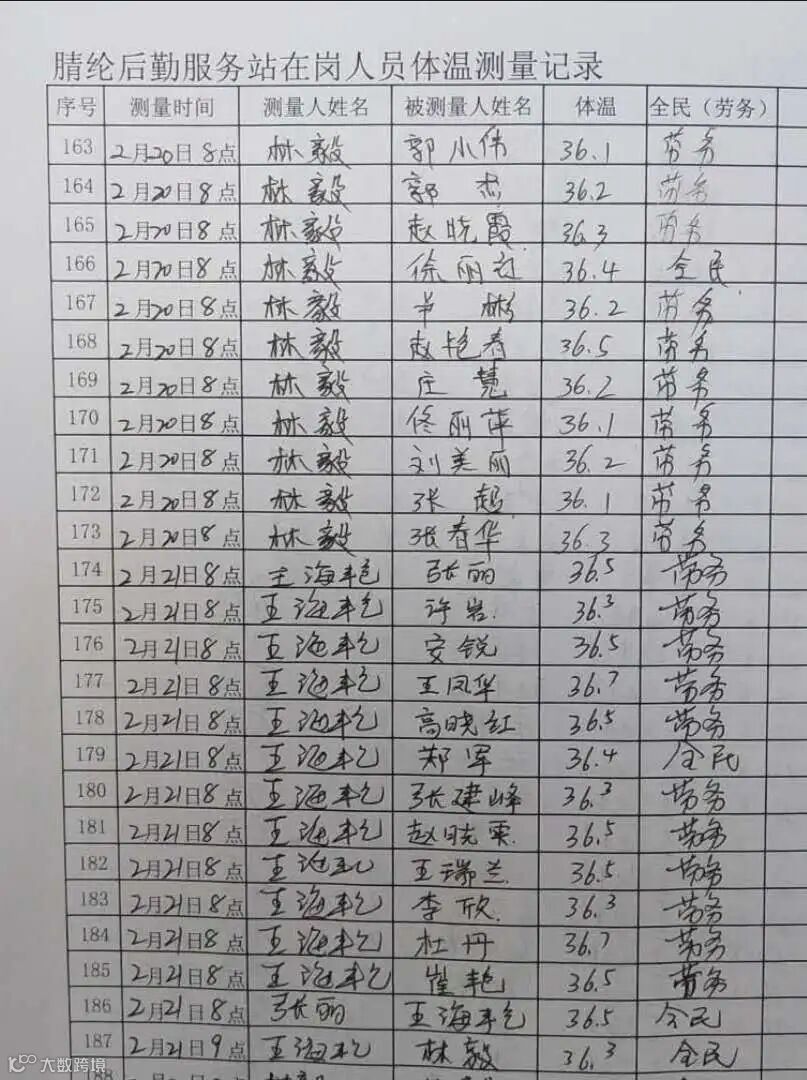 腈纶后勤服务站在岗人员体温测量记录
序号 测量时间 测量人姓名 被测量人姓名 体温 全民（劳务）
163 2月20日8点 林毅 郭小伟 36.1 劳务
164 2月20日8点 林毅 郭杰 36.2 劳务
165 2月20日8点 林毅 赵晓霞 36.3 劳务
166 2月20日8点 林毅 徐丽 36.4 全民
167 2月20日8点 林毅 彬 36.2 劳务
168 2月20日8点 林毅 赵艳春 36.5 劳务
169 2月20日8点 林毅 庄慧 36.2 劳务
170 2月20日8点 林毅 佟丽萍 36.1 劳务
171 2月20日8点 林毅 刘美丽 36.2 劳务
172 2月20日8点 林毅 张超 36.1 劳务
173 2月20日8点 林毅 张春华 36.3 劳务
174 2月21日8点 王海艳 张丽 36.5 劳务
175 2月21日8点 王海艳 许岩 36.3 劳务
176 2月21日8点 王海艳 安锐 36.5 劳务
177 2月21日8点 王海艳 王凤华 36.7 劳务
178 2月21日8点 王海艳 高晓红 36.5 劳务
179 2月21日8点 王海艳 郑军 36.4 全民
180 2月21日8点 王海艳 张建峰 36.3 劳务
181 2月21日8点 王海艳 赵晓雯 36.5 劳务
182 2月21日8点 王海艳 王瑞兰 36.5 劳务
183 2月21日8点 王海艳 李欣 36.3 劳务
184 2月21日8点 王海艳 杜丹 36.7 劳务
185 2月21日8点 王海艳 崔艳 36.5 劳务
186 2月21日8点 张丽 王海艳 36.5 全民
187 2月21日9点 王海艳 林毅 36.3 全民
188
大数跨境